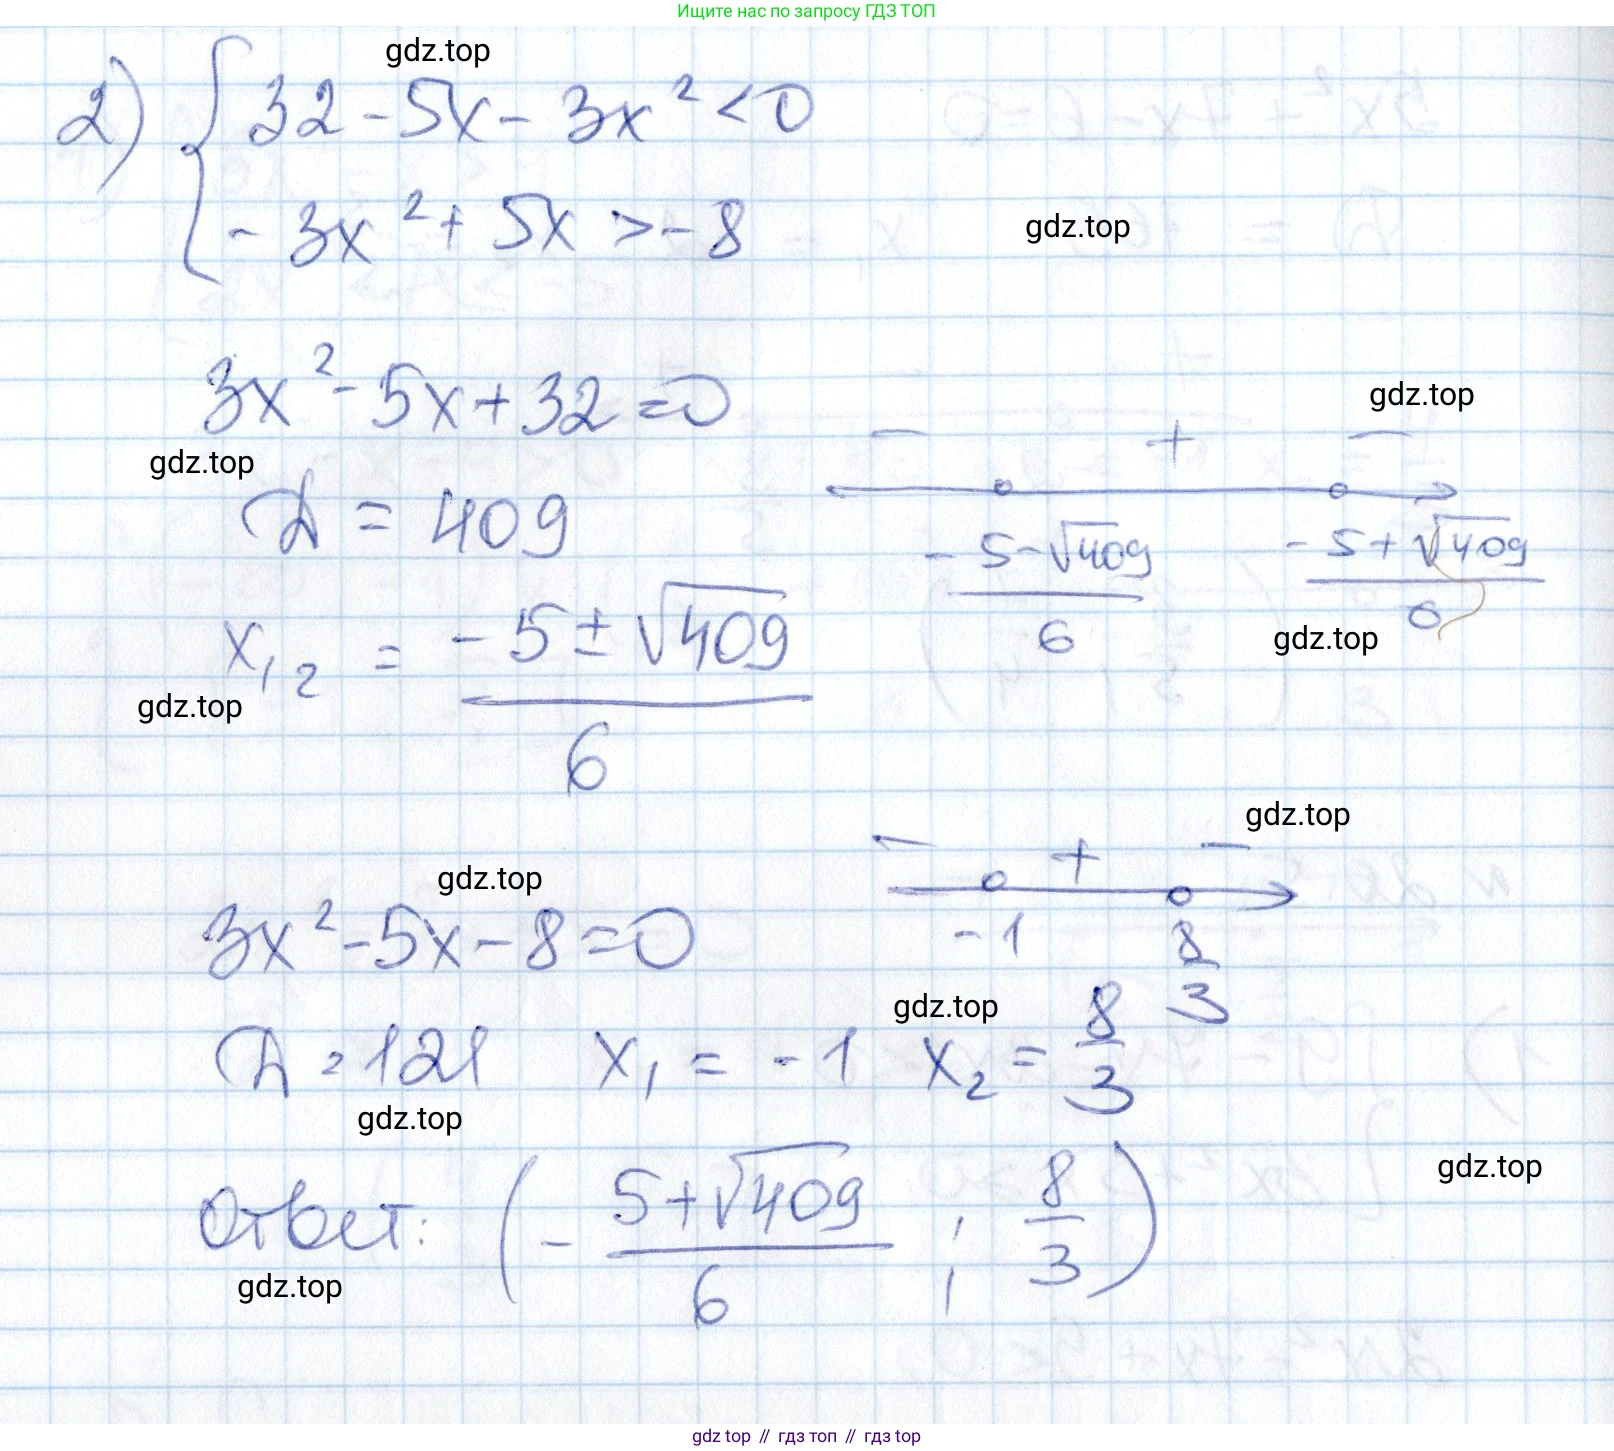 Ищите нас по запросу ГДЗ ТОП
gdz.top
2) { 32 - 5x - 3x² < 0
- 3x² + 5x > - 8
gdz.top
3x² - 5x + 32 = 0
gdz.top
gdz.top
- + -
Д = 409
- 5 - √409 / 6
- 5 + √409 / 6
gdz.top
x₁,₂ = - 5 ± √409 / 6
gdz.top
gdz.top
- + -
-1 8/3
gdz.top
3x² - 5x - 8 = 0
gdz.top
Д = 121 x₁ = - 1 x₂ = 8/3
gdz.top
gdz.top
Ответ: ( - 5 + √409 / 6 ; 8/3 )
gdz.top
gdz top // гдз топ // гдз top